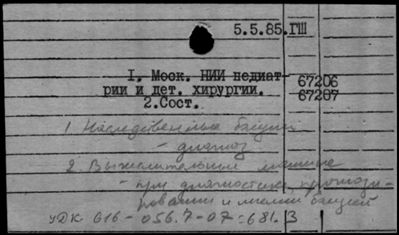 5.5.85.ГШ
I. Моск. НИИ педиат-
рии и дет. хирургии. 67206
2.Сост. 67207
1. Наследственные болезни
- диагноз
2. Вычислительные машины
- при диагностике, прогнози-
ровании и
УДК 616-056.7-07:681.3